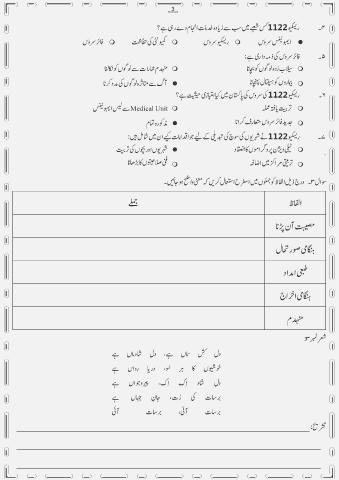 3
۴۔ ریسکیو 1122 کس شعبے میں سب سے زیادہ خدمات انجام دے رہی ہے؟
ایمبولینس سروس ریسکیو سروس کمیونٹی کی حفاظت فائر سروس
۵۔ فائر سروس کی ذمہ داری ہے:
سیلاب زدہ لوگوں کو بچانا منہدم عمارات سے لوگوں کو نکالنا
بیماروں کو ہسپتال پہنچانا آگ سے متاثرہ لوگوں کی مدد کرنا
۶۔ ریسکیو 1122 کی سروس کی پاکستان میں کیا امتیازی حیثیت ہے؟
تربیت یافتہ عملہ Medical Unit سے لیس ایمبولینس
جدید فائر سروس متعارف کرانا مذکورہ تمام
۷۔ ریسکیو 1122 نے شہریوں کی سوچ کی تبدیلی کے لیے جو اقدامات کیے ان میں شامل ہیں:
ٹیلی ویژن پروگراموں کا انعقاد شہریوں اور بچوں کی تربیت
تربیتی مراکز میں اضافہ فنی صلاحیتوں کا بڑھانا
سوال ۳۔ درج ذیل الفاظ کو جملوں میں اسطرح استعمال کریں کہ معنی واضح ہو جائیں۔
الفاظ جملے
مصیبت آن پڑنا
ہنگامی صورتحال
طبی امداد
ہنگامی اخراج
منہدم
شعر نمبر ۳
دل کش سماں ہے، دل شادماں ہے
خوشیوں کا ہر سو، دریا رواں ہے
دل شاد اک اک، پیر و جواں ہے
برسات کی رت، جان جہاں ہے
برسات آئی، برسات آئی
تشریح: